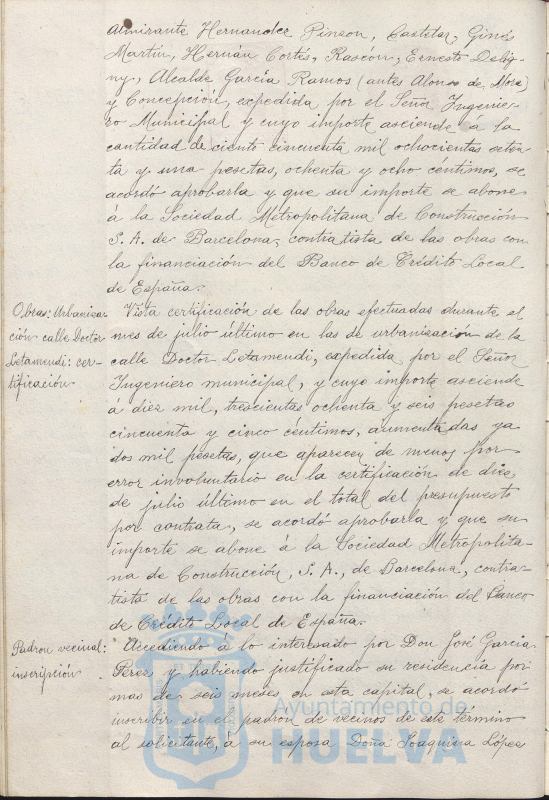 Almirante Hernandez Pinson, Castelar, Ginés
Martín, Hernán Cortés, Rascón, Ernesto Delig-
ny, Alcalde García Ramos (antes Alonso de Mora)
y Concepción, expedida por el Señor Ingenie-
ro Municipal y cuyo importe asciende á la
cantidad de ciento cincuenta mil ochocientas seten-
ta y una pesetas, ochenta y ocho céntimos, se
acordó aprobarla y que su importe se abone
á la Sociedad Metropolitana de Construcción
S. A. de Barcelona, contratista de las obras con
la financiación del Banco de Crédito Local
de España.
Obras: Urbaniza-
ción calle Doctor
Letamendi: cer-
tificación
Vista certificación de las obras efectuadas durante el
mes de julio último en las de urbanización de la
calle Doctor Letamendi, expedida por el Señor
Ingeniero municipal, y cuyo importe asciende
á diez mil, trescientas ochenta y seis pesetas
cincuenta y cinco céntimos, aumentadas ya
dos mil pesetas, que aparecen de menos por
error involuntario en la certificación de diez
de julio último en el total del presupuesto
por contrata, se acordó aprobarla y que su
importe se abone á la Sociedad Metropolita-
na de Construcción, S. A., de Barcelona, contra-
tista de las obras con la financiación del Banco
de Crédito Local de España.
Padron vecinal:
inscripción
Accediendo á lo interesado por Don José García
Perez y habiendo justificado su residencia por
mas de seis meses en esta capital, se acordó
inscribir en el padron de vecinos de este término
al solicitante, á su esposa Doña Joaquina López
Ayuntamiento de
HUELVA